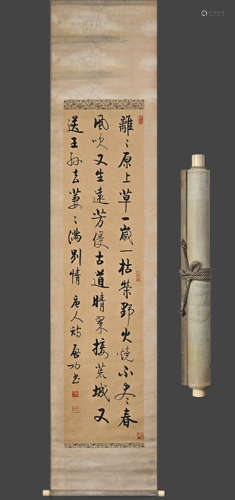 離〻原上草一歲一枯榮野火燒不盡春
風吹又生遠芳侵古道晴翠接荒城又
送王孫去萋〻滿別情 唐人詩 啟功書